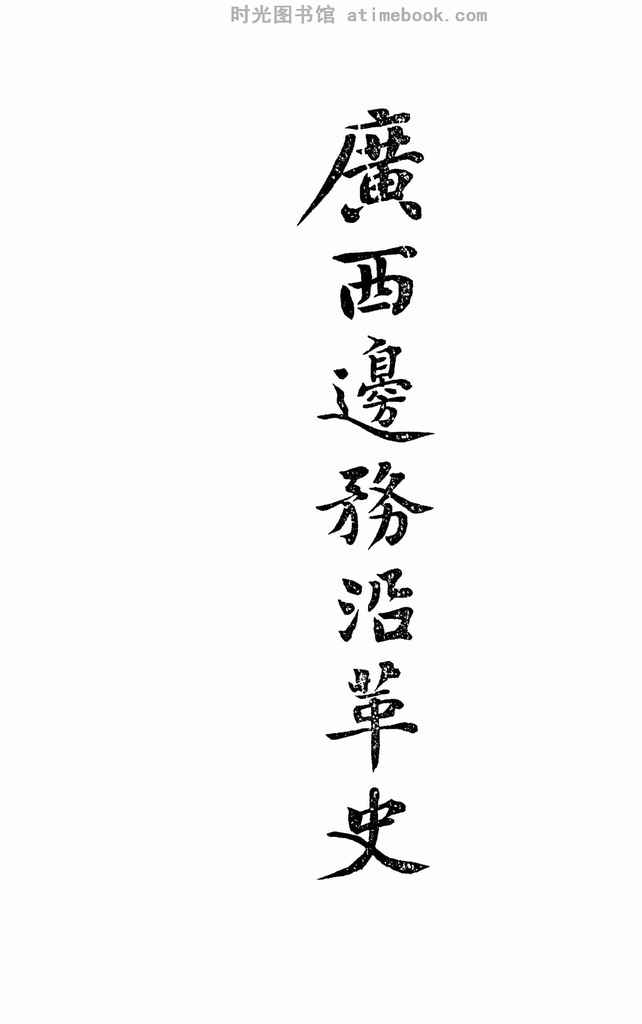 时光图书馆 atimebook.com
廣西邊務沿革史